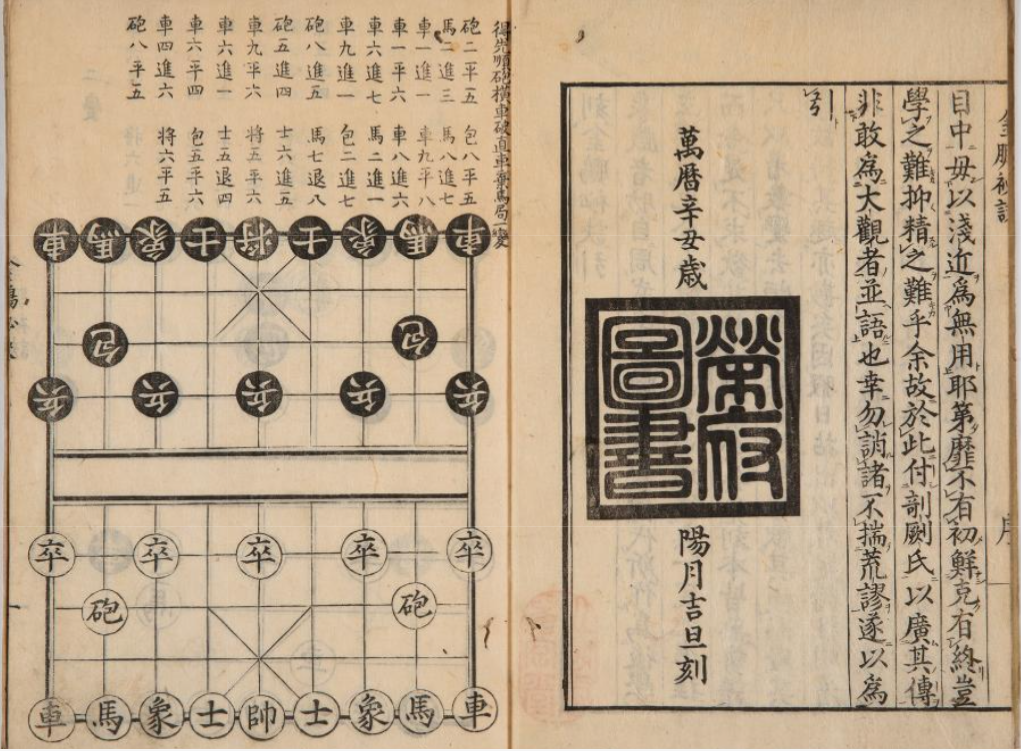 金鵬秘訣 序
目中毋以淺近為無用耶第靡不有初鮮克有終豈
學之難抑精之難乎余故於此付剞劂氏以廣其傳
非敢為大觀者並語也幸勿誚諸不揣荒謬遂以為
引
萬曆辛丑歲
榮府
圖書
陽月吉旦刻
得先順砲橫車破直車棄馬局一變
砲二平五 包八平五
馬二進三 馬八進七
車一進一 車九平八
車一平六 車八進六
車六進七 馬二進一
車九進一 包二進七
砲八進五 馬七退八
砲五進四 士六進五
車九平六 将五平六
車六進一 士五退四
車六平四 包五平六
車四進六 将六平五
砲八平五
車馬象士将士象馬車
包包
兵兵兵兵兵
卒卒卒卒卒
砲砲
車馬象士帥士象馬車